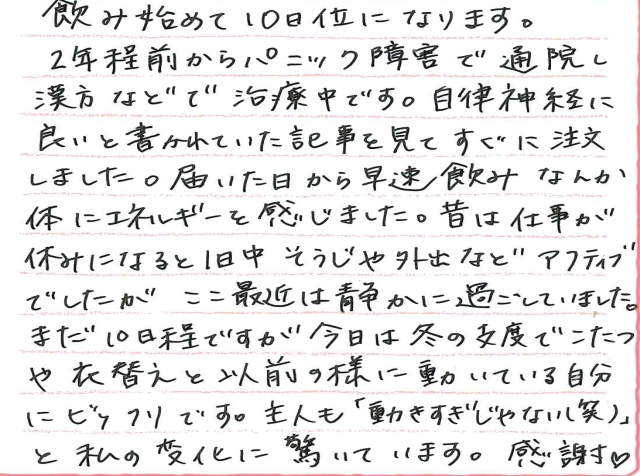 飲み始めて10日位になります。
2年程前からパニック障害で通院し
漢方などで治療中です。自律神経に
良いと書かれていた記事を見てすぐに注文
しました。届いた日から早速飲みなんか
体にエネルギーを感じました。昔は仕事が
休みになると1日中そうじや外出などアクティブ
でしたがここ最近は静かに過ごしていました。
まだ10日程ですが今日は冬の支度でこたつ
や衣替えと以前の様に動いている自分
にビックリです。主人も「動きすぎじゃない(笑)」
と私の変化に驚いています。感謝♡